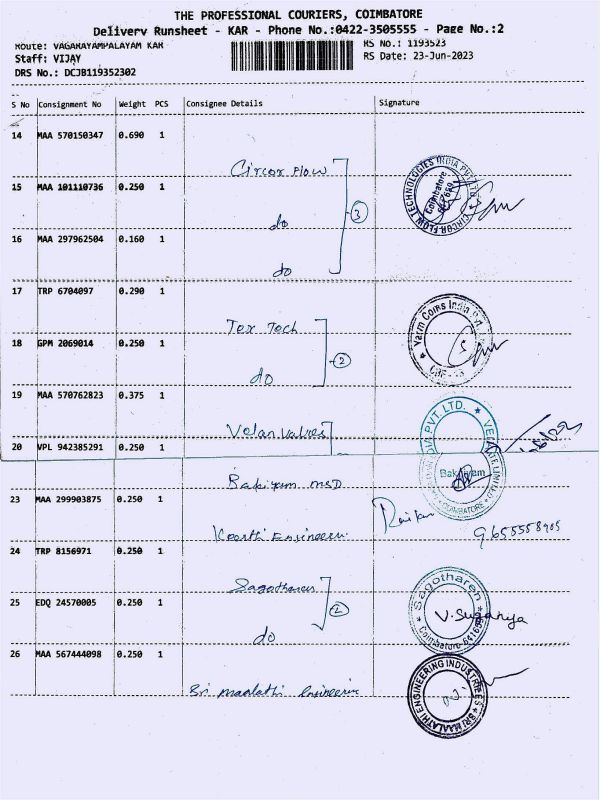 THE PROFESSIONAL COURIERS, COIMBATORE
Delivery Runsheet - KAR - Phone No.:0422-3505555 - Page No.:2
Route: VAGARAYAMPALAYAM KAR
RS No.: 1193523
Staff: VIJAY
RS Date: 23-Jun-2023
DRS No.: DCJB119352302
S No Consignment No Weight PCS Consignee Details Signature
14 MAA 570150347 0.690 1
Circor Flow
CIRCOR FLOW TECHNOLOGIES INDIA PVT LTD
Coimbatore
15 MAA 101110736 0.250 1
3
do
16 MAA 297962504 0.160 1
do
17 TRP 6704097 0.290 1
Tex Tech
Yarm Coms India Pvt
18 GPM 2069014 0.250 1
2
do
19 MAA 570762823 0.375 1
Velan Valves
INDIA PVT. LTD. ★ VELAN
20 VPL 942385291 0.250 1
Bakiyam MSD
Bakiyam
LIMITED
COIMBATORE
23 MAA 299903875 0.250 1
Keerthi Engineerin
9655558905
24 TRP 8156971 0.250 1
Sagotharen
Sagotharen
25 EDQ 24570005 0.250 1
2
V. Suganya
do
Coimbatore-641659
26 MAA 567444098 0.250 1
Sri Maalathi Engineerin
SRI MAALATHI ENGINEERING INDUSTRIES